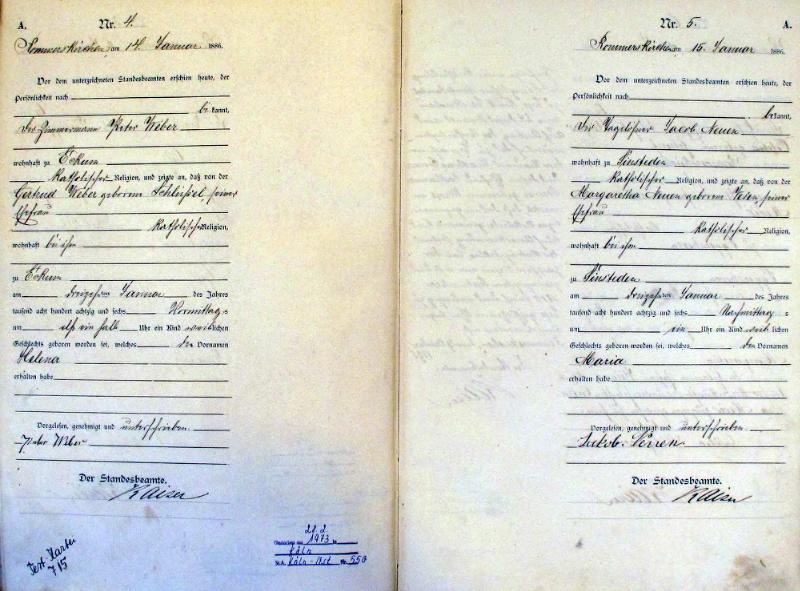 A.
Nr. 4.
Rommerskirchen am 14. Januar 1886.
Vor dem unterzeichneten Standesbeamten erschien heute, der
Persönlichkeit nach
bekannt,
Der Zimmermann Peter Weber
wohnhaft zu Eckum
Katholischer Religion, und zeigte an, daß von der
Gertrud Weber geborenen Schlüssel, seiner
Ehefrau
Katholischer Religion,
wohnhaft bei ihm
zu Eckum
am dreizehnten Januar des Jahres
tausend acht hundert achtzig und sechs Vormittags
um elf ein halb Uhr ein Kind weiblichen
Geschlechts geboren worden sei, welches den Vornamen
Helena
erhalten habe
Vorgelesen, genehmigt und unterschrieben.
Peter Weber
Der Standesbeamte.
Kaiser
Test-Kartei
715
21.2.
1973
Köln
Köln-
Nr. 550
Nr. 5.
A.
Rommerskirchen am 15. Januar 1886.
Vor dem unterzeichneten Standesbeamten erschien heute, der
Persönlichkeit nach
bekannt,
Der Tagelöhner Jacob
wohnhaft zu Sinsteden
Katholischer Religion, und zeigte an, daß von der
Margaretha geborenen seiner
Ehefrau
Katholischer Religion,
wohnhaft bei ihm
zu Sinsteden
am dreizehnten Januar des Jahres
tausend acht hundert achtzig und sechs Nachmittags
um ein Uhr ein Kind weiblichen
Geschlechts geboren worden sei, welches den Vornamen
Maria
erhalten habe
Vorgelesen, genehmigt und unterschrieben.
Jakob
Der Standesbeamte.
Kaiser